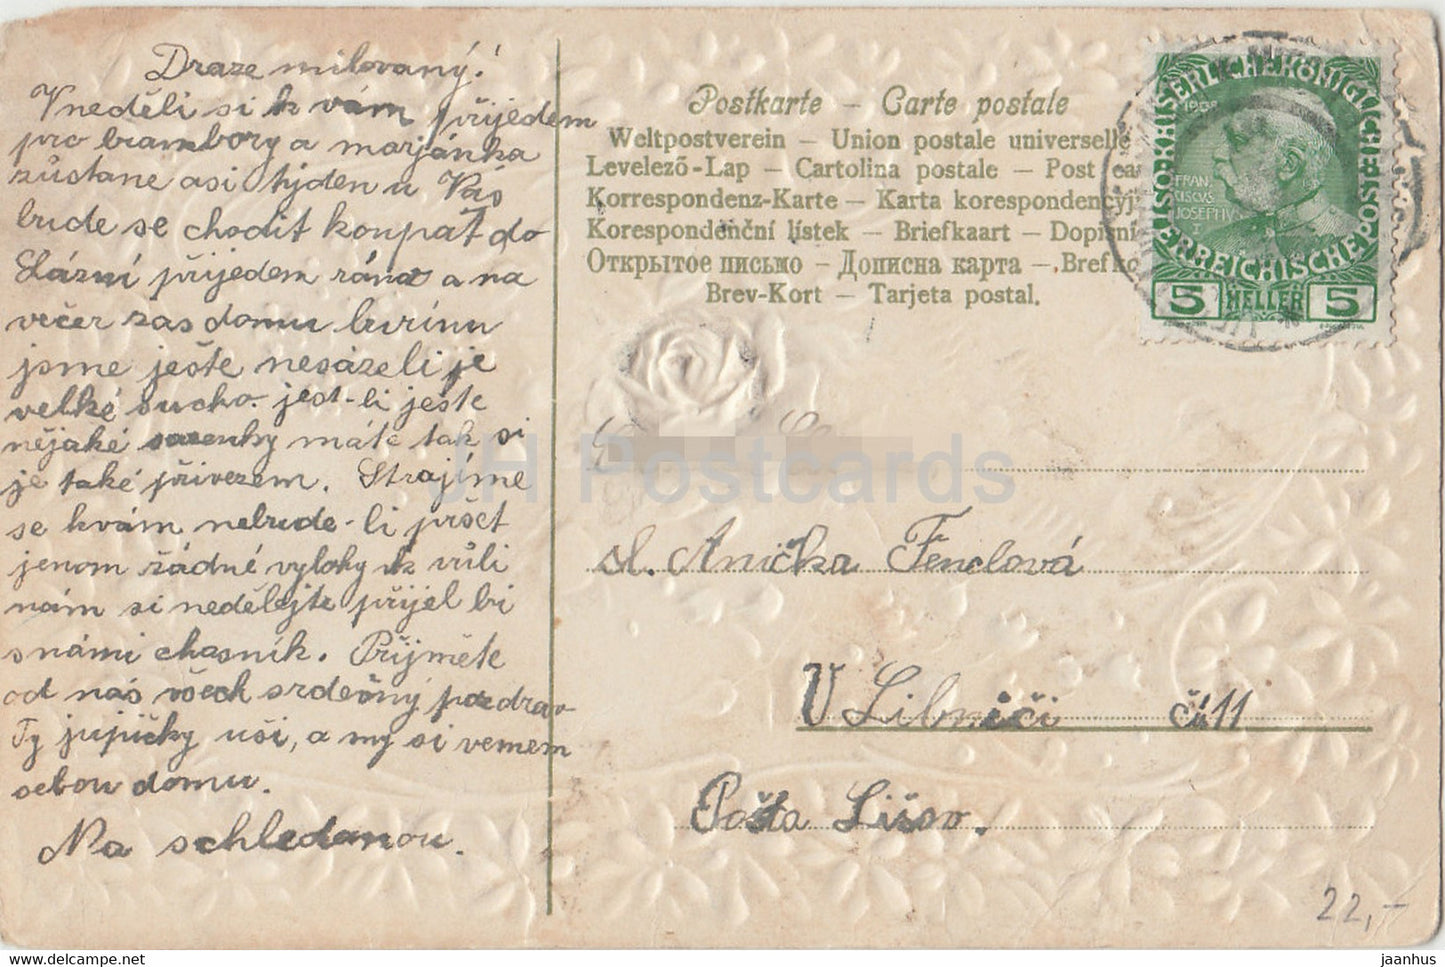 Draze milovaný!
Vneděli si k vám přijedem
pro brambory a marjánka
zůstane asi týden u Vás
bude se chodit koupat do
Lázní přijedem ráno a na
večer zas domu burinu
jsme ješte nesázeli je
velké sucho. jest-li ješte
nějaké sazenky máte tak si
je také přivezem. Strajíme
se kvám nebude-li pršet
jenom žádné vyloky k vůli
nám si nedělejte přijel bi
snámi chasník. Přijměte
od nás všech srdečný pozdrav
Ty jujučky uši, a my si vemem
sebou domu.
Na schledanou.
Postkarte – Carte postale
Weltpostverein – Union postale universelle
Levelező-Lap – Cartolina postale – Post ca
Korrespondenz-Karte – Karta korespondencyj
Korespondenční lístek – Briefkaart – Dopisni
Открытое письмо – Дописна карта – Brefko
Brev-Kort – Tarjeta postal.
KAISERLICHE KÖNIGLICHE ÖSTERREICHISCHE POST
1908
FRAN
CISCVS
JOSEPH
I
5 HELLER 5
JH Postcards
sl. Anička Fenclová
V Libniči či 11
Pošta Lišov.
22,-
jaanhus